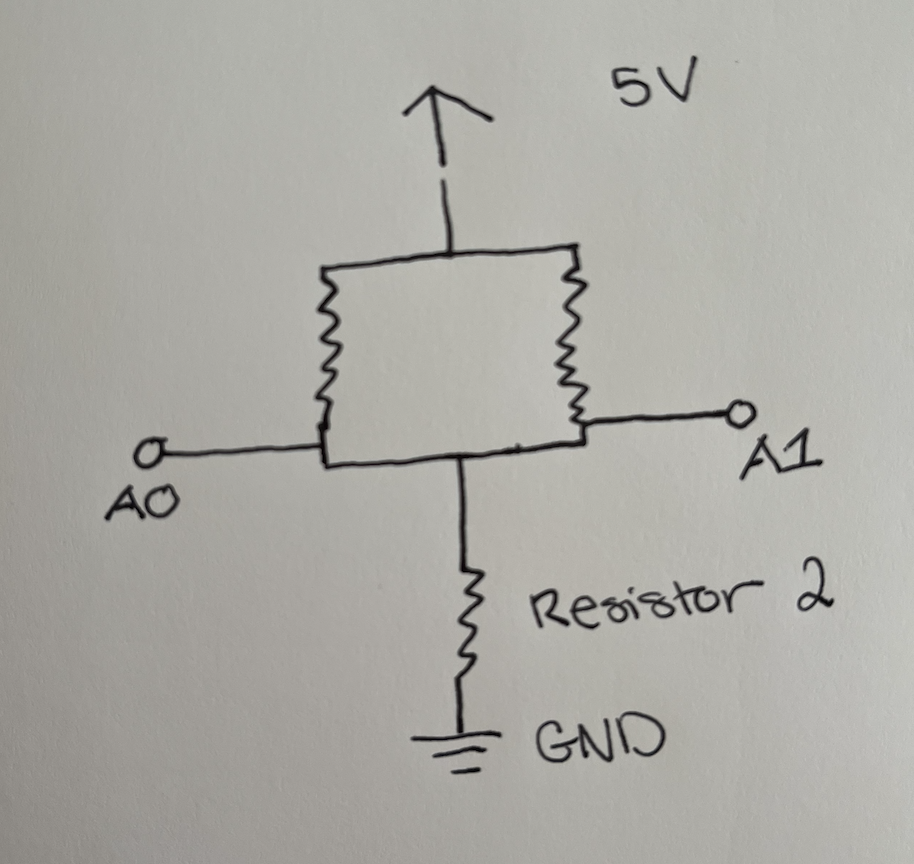 5V
A1
A0
Resistor 2
GND